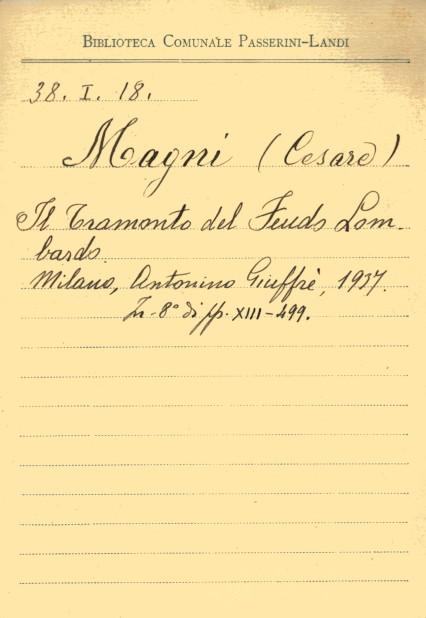 BIBLIOTECA COMUNALE PASSERINI-LANDI
38. I. 18.
Magni (Cesare)
Il Tramonto del Feudo Lom-
bardo.
Milano, Antonino Giuffrè, 1937.
In-8° di pp. XIII-499.